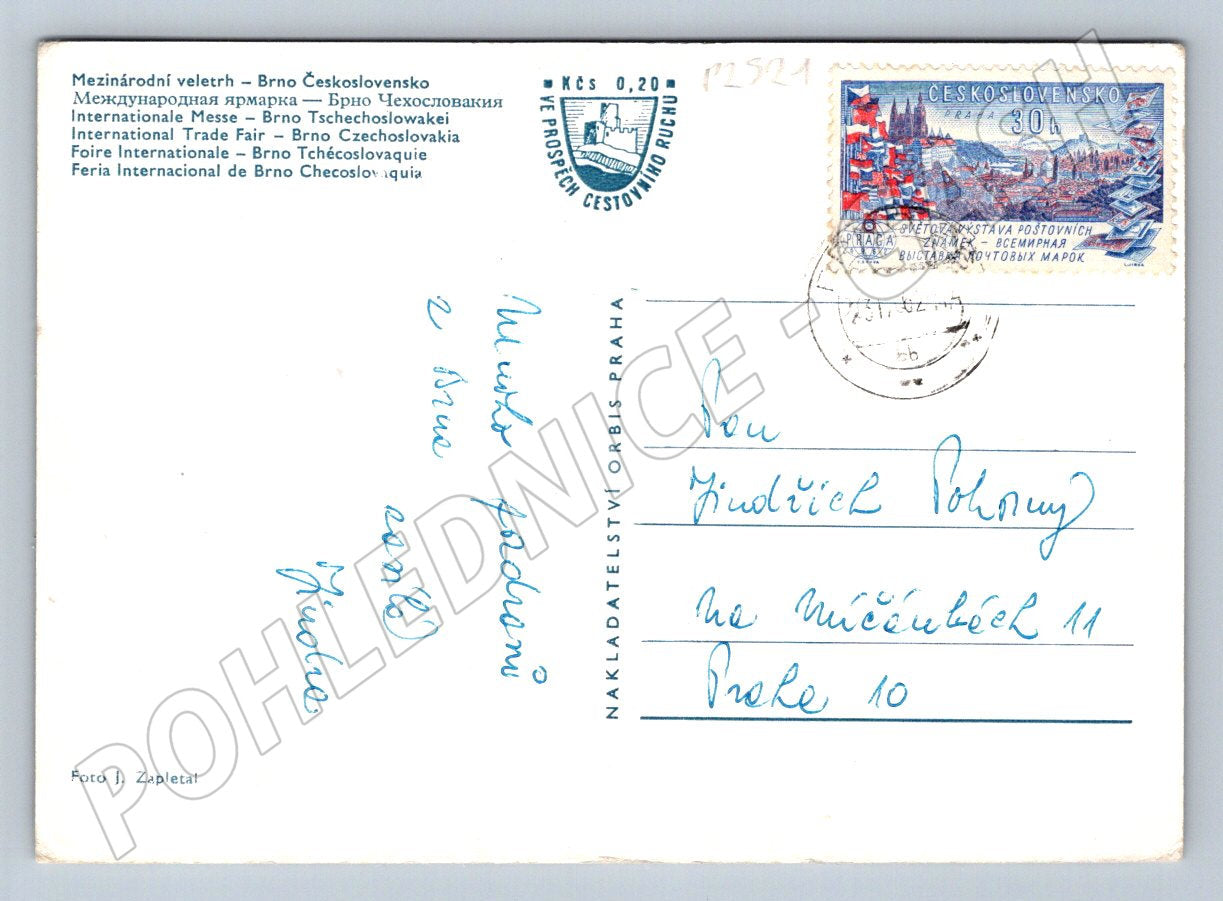 Mezinárodní veletrh – Brno Československo
Международная ярмарка — Брно Чехословакия
Internationale Messe – Brno Tschechoslowakei
International Trade Fair – Brno Czechoslovakia
Foire Internationale – Brno Tchécoslovaquie
Feria Internacional de Brno Checoslovaquia
Kčs 0,20
VE PROSPĚCH CESTOVNÍHO RUCHU
P2521
ČESKOSLOVENSKO
PRAHA 30h
PRAGA
SVĚTOVÁ VÝSTAVA POŠTOVNÍCH
ZNÁMEK – ВСЕМИРНАЯ
ВЫСТАВКА ПОЧТОВЫХ МАРОК
Mnoho pozdravů
z Brna
zasílá
Jindra
NAKLADATELSTVÍ ORBIS PRAHA
Pan
Jindřich Pokorný
Na Míčánkách 11
Praha 10
Foto J. Zapletal
POHLEDNICE -